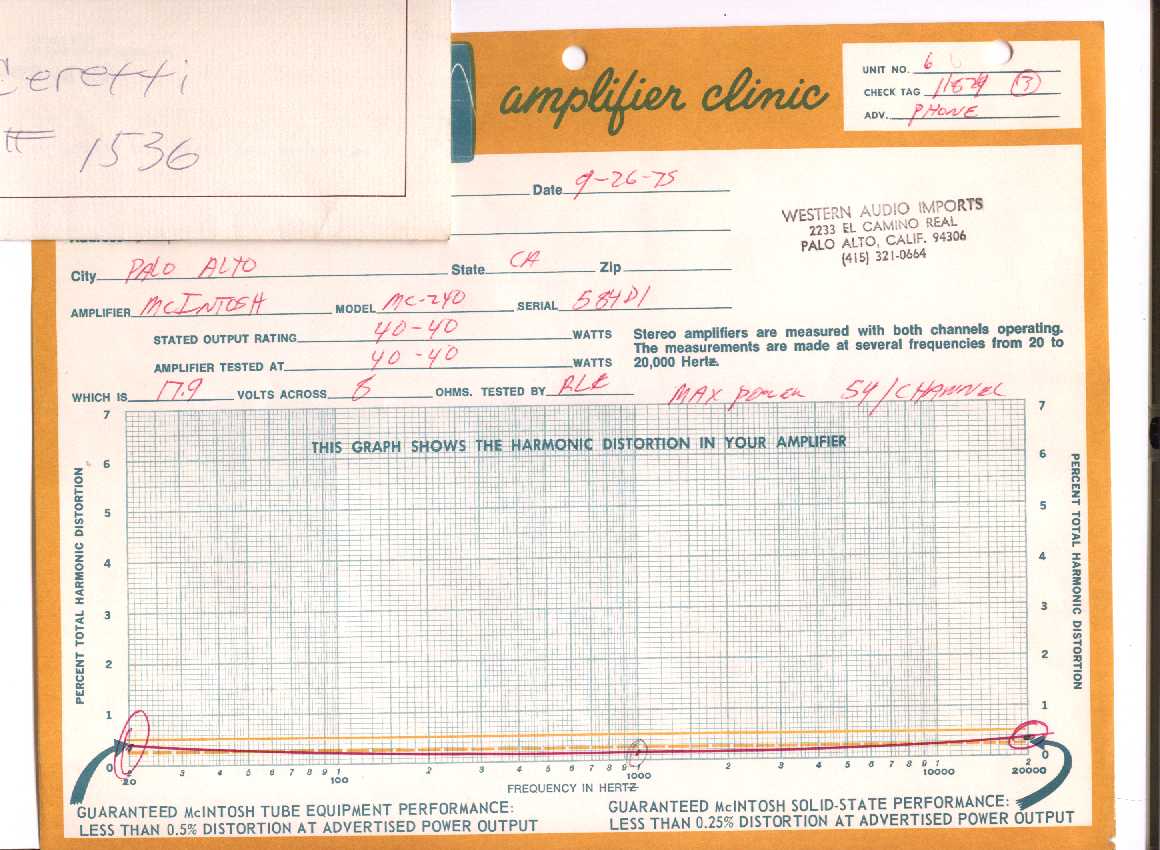 Ceretti
# 1536
amplifier clinic
UNIT NO. 6
CHECK TAG 11529 (3)
ADV. PHONE
Date 9-26-75
WESTERN AUDIO IMPORTS
2233 EL CAMINO REAL
PALO ALTO, CALIF. 94306
(415) 321-0664
City PALO ALTO State CA Zip
AMPLIFIER McINTOSH MODEL MC-240 SERIAL 584D1
STATED OUTPUT RATING 40-40 WATTS
AMPLIFIER TESTED AT 40-40 WATTS
Stereo amplifiers are measured with both channels operating.
The measurements are made at several frequencies from 20 to
20,000 Hertz.
WHICH IS 17.9 VOLTS ACROSS 8 OHMS. TESTED BY RLE
MAX POWER 54/CHANNEL
THIS GRAPH SHOWS THE HARMONIC DISTORTION IN YOUR AMPLIFIER
PERCENT TOTAL HARMONIC DISTORTION
7
6
5
4
3
2
1
0
7
6
5
4
3
2
1
0
PERCENT TOTAL HARMONIC DISTORTION
2 3 4 5 6 7 8 9 1 2 3 4 5 6 7 8 9 1 2 3 4 5 6 7 8 9 1 2
20 100 1000 10000 20000
FREQUENCY IN HERTZ
GUARANTEED McINTOSH TUBE EQUIPMENT PERFORMANCE:
LESS THAN 0.5% DISTORTION AT ADVERTISED POWER OUTPUT
GUARANTEED McINTOSH SOLID-STATE PERFORMANCE:
LESS THAN 0.25% DISTORTION AT ADVERTISED POWER OUTPUT